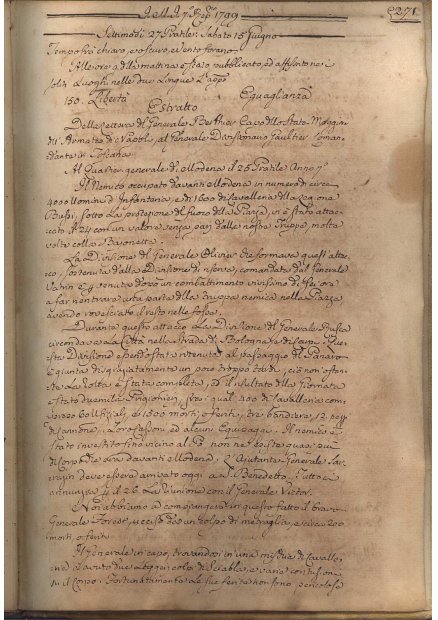 271
1799
Settimodi 27 Pratile: Sabato 15 Giugno
Tempo frà chiaro, e oscuro, e vento
Alle ore della mattina è stato pubblicato, ed affisso ne i
soliti Luoghi nelle due Lingue L'app.
150. Libertà Eguaglianza
Estratto
Della Lettera del Generale Berthier Capo dello Stato Maggior
di Armata di Napoli, al Generale Divisionario Gaultier Coman-
dante in Toscana
Al Quartier generale di Modena il 25 Pratile Anno 7.
Il Nemico occupato davanti Modena in numero di circa
4000 Uomini d'Infanteria, e di 1600 di Cavalleria alla
Bussi, sotto la protezione del fuoco della Piazza, in è stato attac-
cato il 24 con un valore senza pari dalle nostre Truppe, molte
volte colla Baionetta.
La Divisione del Generale Olivier che formava quest'attac-
co, sostenuta dalla Divisione di riserva, comandata dal Generale
Vatrin è venuta dopo un combattimento vivissimo di sei ore
a far rientrare una parte della truppa nemica nella Piazza
avendo rovesciato il resto nelle fosse.
Durante questo attacco La Divisione del Generale Rusca
circondava la Città nella strada di Bologna, e di Carpi. Que-
sta Divisione essendo stata ritenuta al passaggio del Panaro
è giunta disgraziatamente un poco troppo tardi, ciò non ostan-
te La Rotta è stata completa, ed il risultato della giornata
è stato duemila Prigionieri, fra i quali 200 di Cavalleria com-
presi 60 Uffiziali, e 1500 morti, o feriti, tre bandiere, 12 pezzi
di Cannone, Loro Cassoni ed alcuni Equipaggi. Il nemico è
stato investito fino vicino al Pò non ne esiste quasi più
di Corpo che era davanti a Modena. L'Aiutante Generale Sar-
razin dove essere arrivato oggi a S. Benedetto. Tutto ci
annunzia il 26 La riunione con il Generale Victor.
Noi abbiamo da compiangere in questo fatto il bravo
Generale Forest, ucciso da un colpo di mitraglia, e circa 200
morti, o feriti.
Il Generale in capo, trovandosi in una mischia di Cavalle-
ria à avuto due leggeri colpi di Sciabla, e varie contusioni
su il Corpo. Fortunatamente le sue ferite non sono pericolose